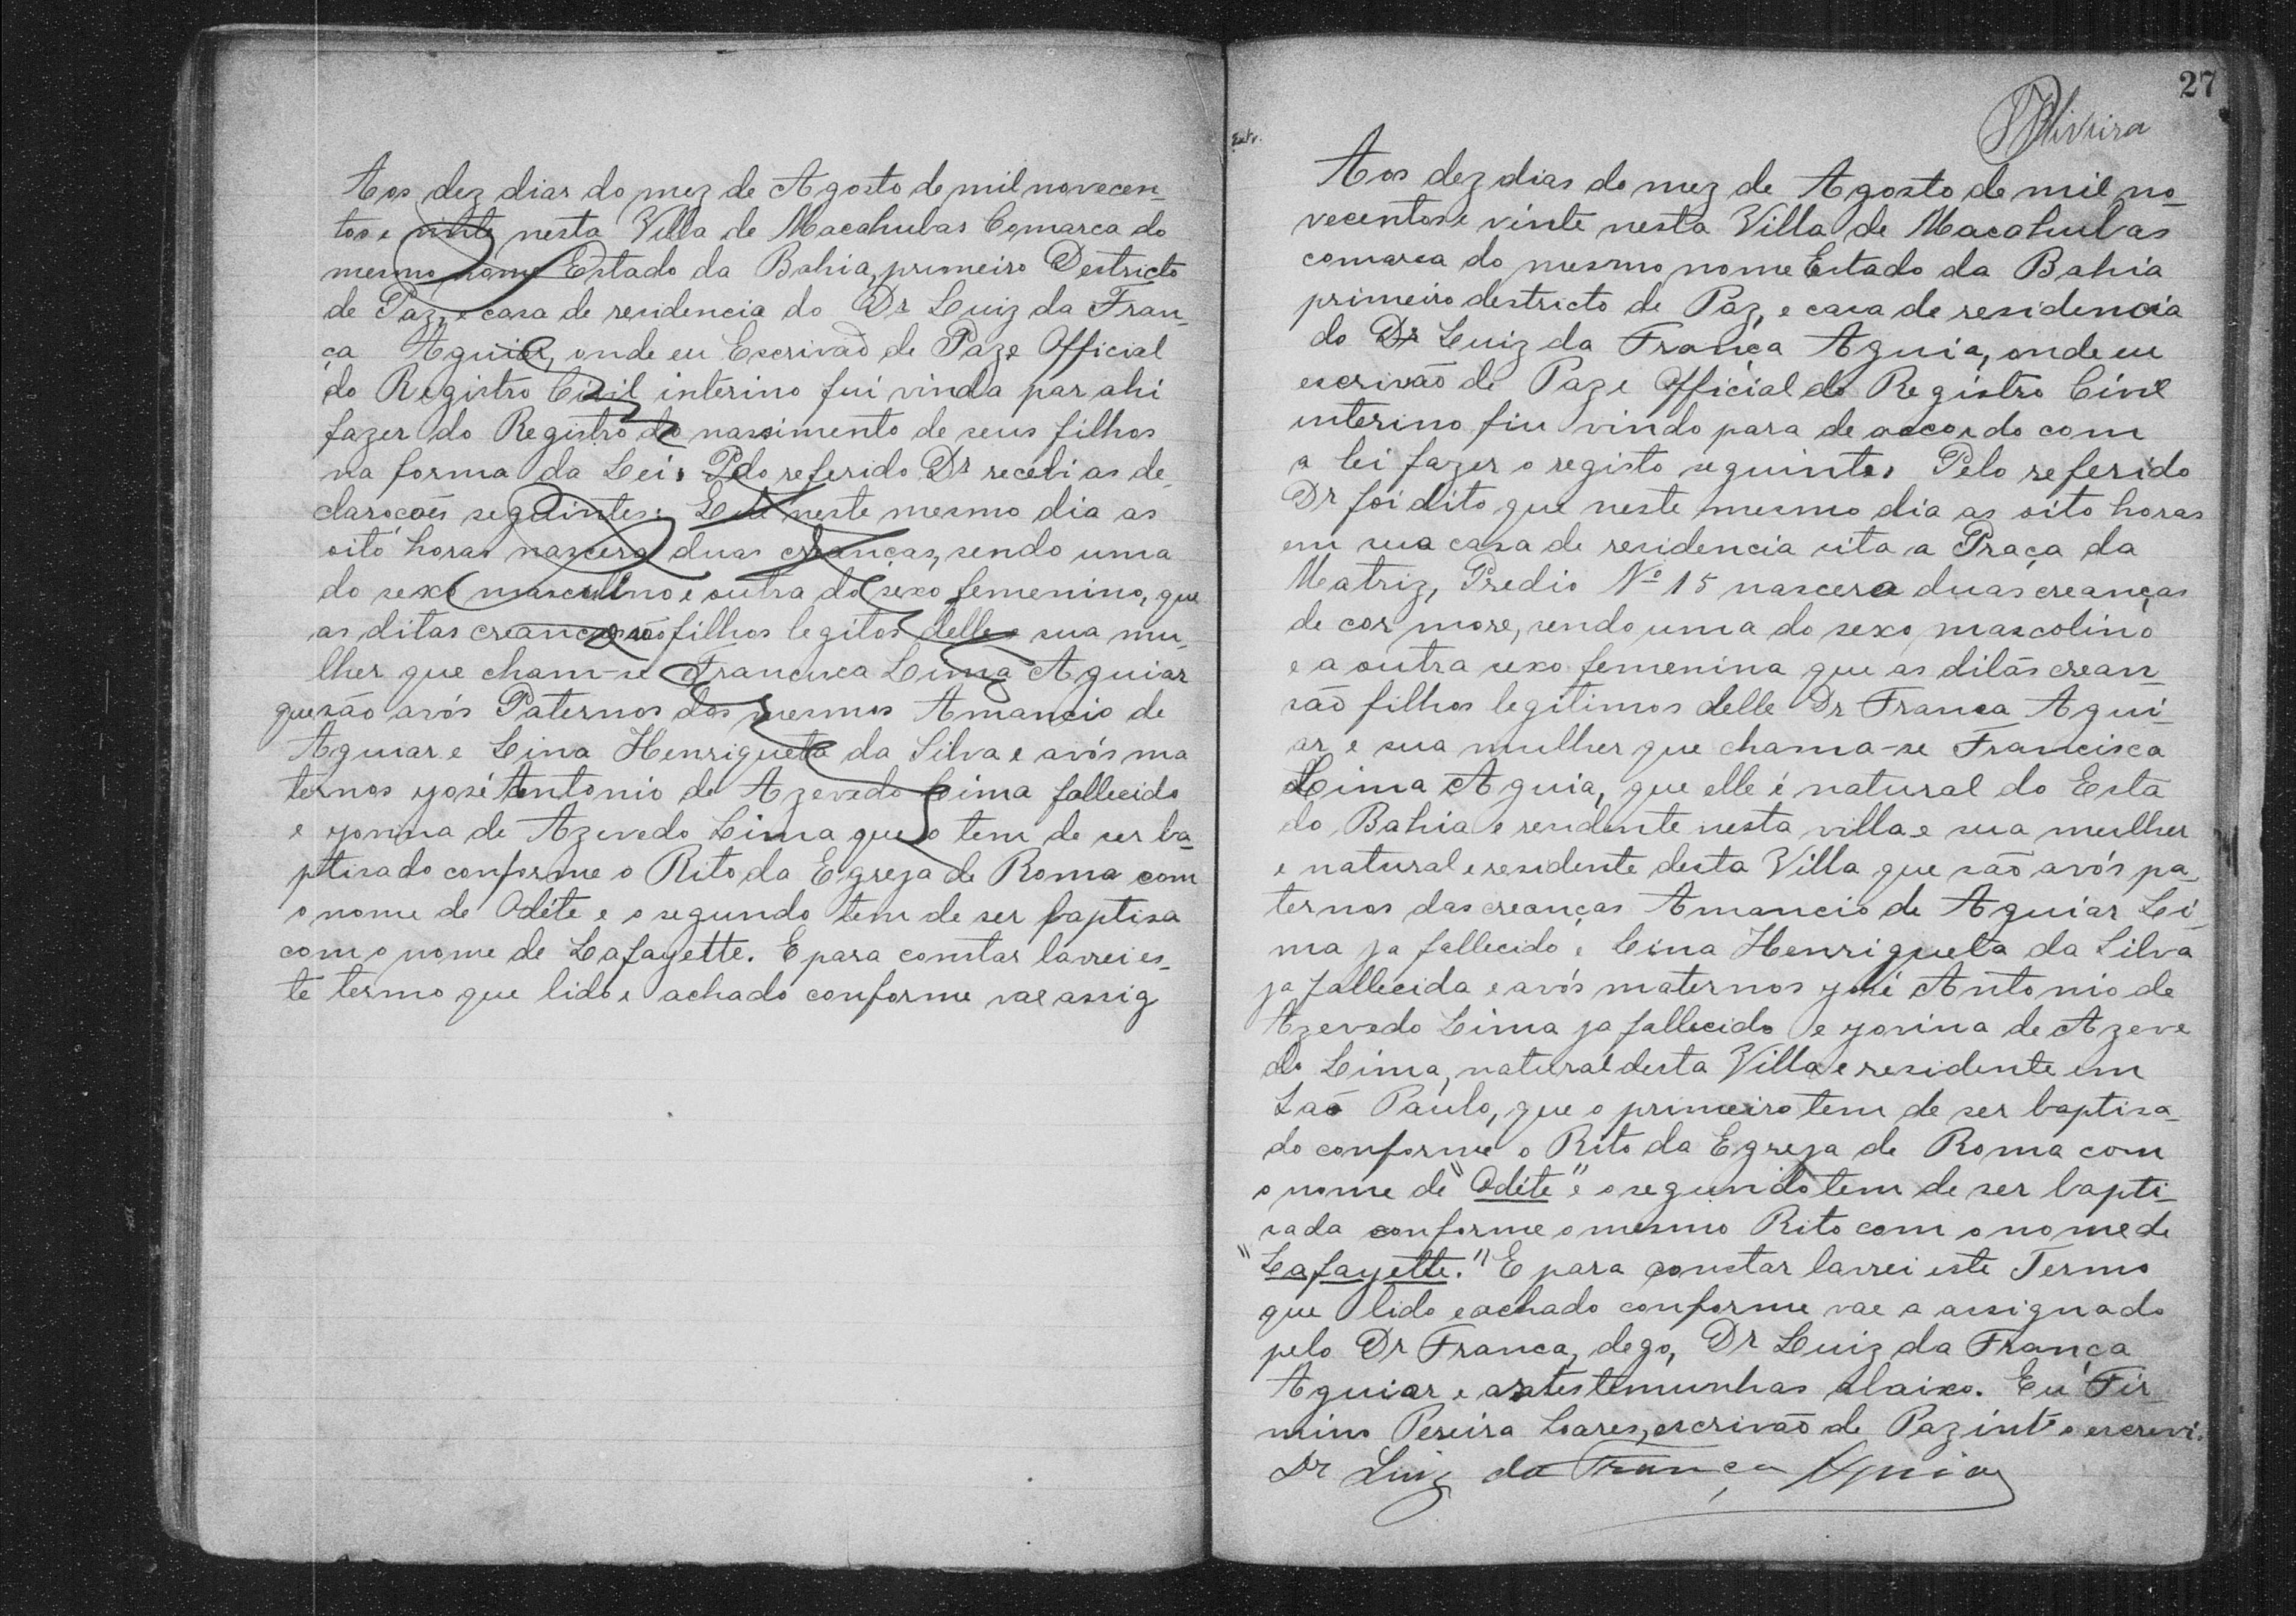 Aos dez dias do mez de Agosto de mil novecen-
tos e vinte nesta Villa de Macahubas Comarca do
mesmo nome Estado da Bahia, primeiro Destricto
de Paz, e casa de residencia do Dr Luiz da Fran-
ça Aguiar, onde eu Escrivaõ de Paz e Official
do Registro Civil interino fui vinda par ahi
fazer do Registro do nassimento de seus filhos
na forma da Lei. Pelo referido Dr recebi as de-
claracoẽs seguintes: neste mesmo dia as
oito horas nascera duas creanças, sendo uma
do sexo masculino e outra do sexo femenino, que
as ditas creanças são filhos legitos delle e sua mu-
lher que cham-se Francisca Lima Aguiar
que são avós Paternos dos mesmos Amancio de
Aguiar e Lina Henriqueta da Silva e avós ma
ternos José Antonio de Azevedo Lima fallecido
e Jovina de Azevedo Lima que o tem de ser ba-
ptisado conforme o Rito da Egreja de Roma com
o nome de Odéte e o segundo tem de ser baptisa
com o nome de Lafayette. E para constar lavrei es-
te termo que lido e achado conforme vae assig
27
Oliveira
Aos dez dias do mez de Agosto de mil no-
vecentos e vinte nesta Villa de Macahubas
comarca do mesmo nome Estado da Bahia
primeiro destricto de Paz, e casa de residencia
do Dr Luiz da França Aguia, onde eu
escrivaõ de Paz e Official do Registro Civil
interino fiu vindo para de accordo com
a lei fazer o registo seguinte. Pelo referido
Dr foi dito que neste mesmo dia as oito horas
em sua casa de residencia sita a Praça da
Matriz, Predio Nº 15 nascera duas creanças
de cor more, sendo uma do sexo mascolino
e a outra sexo femenina que as ditas crean-
saõ filhos legitimos delle Dr Franca Agui-
ar e sua mulher que chama-se Francisca
Lima Aguia, que elle é natural do Esta
do Bahia e residente nesta villa e sua mulher
e natural e residente desta Villa que saõ avós pa-
ternos das creanças Amancio de Aguiar Li-
ma ja fallecido e Lina Henriqueta da Silva
ja fallecida e avós maternos José Antonio de
Azevedo Lima ja fallecido e Jovina de Azeve
do Lima, natural desta Villa e residente em
Saõ Paulo, que o primeiro tem de ser baptisa-
do conforme o Rito da Egreja de Roma com
o nome de "Odéte" e o segundo tem de ser bapti-
sada conforme o mesmo Rito com o nome de
"Lafayette." E para constar lavrei este Termo
que lido e achado conforme vae a assignado
pelo Dr Franca, dego, Dr Luiz da França
Aguiar e as testemunhas abaixo. Eu Fir-
mino Pereira Soares, escrivaõ de Paz intº o escrevi.
Dr Luiz da França Aguiar